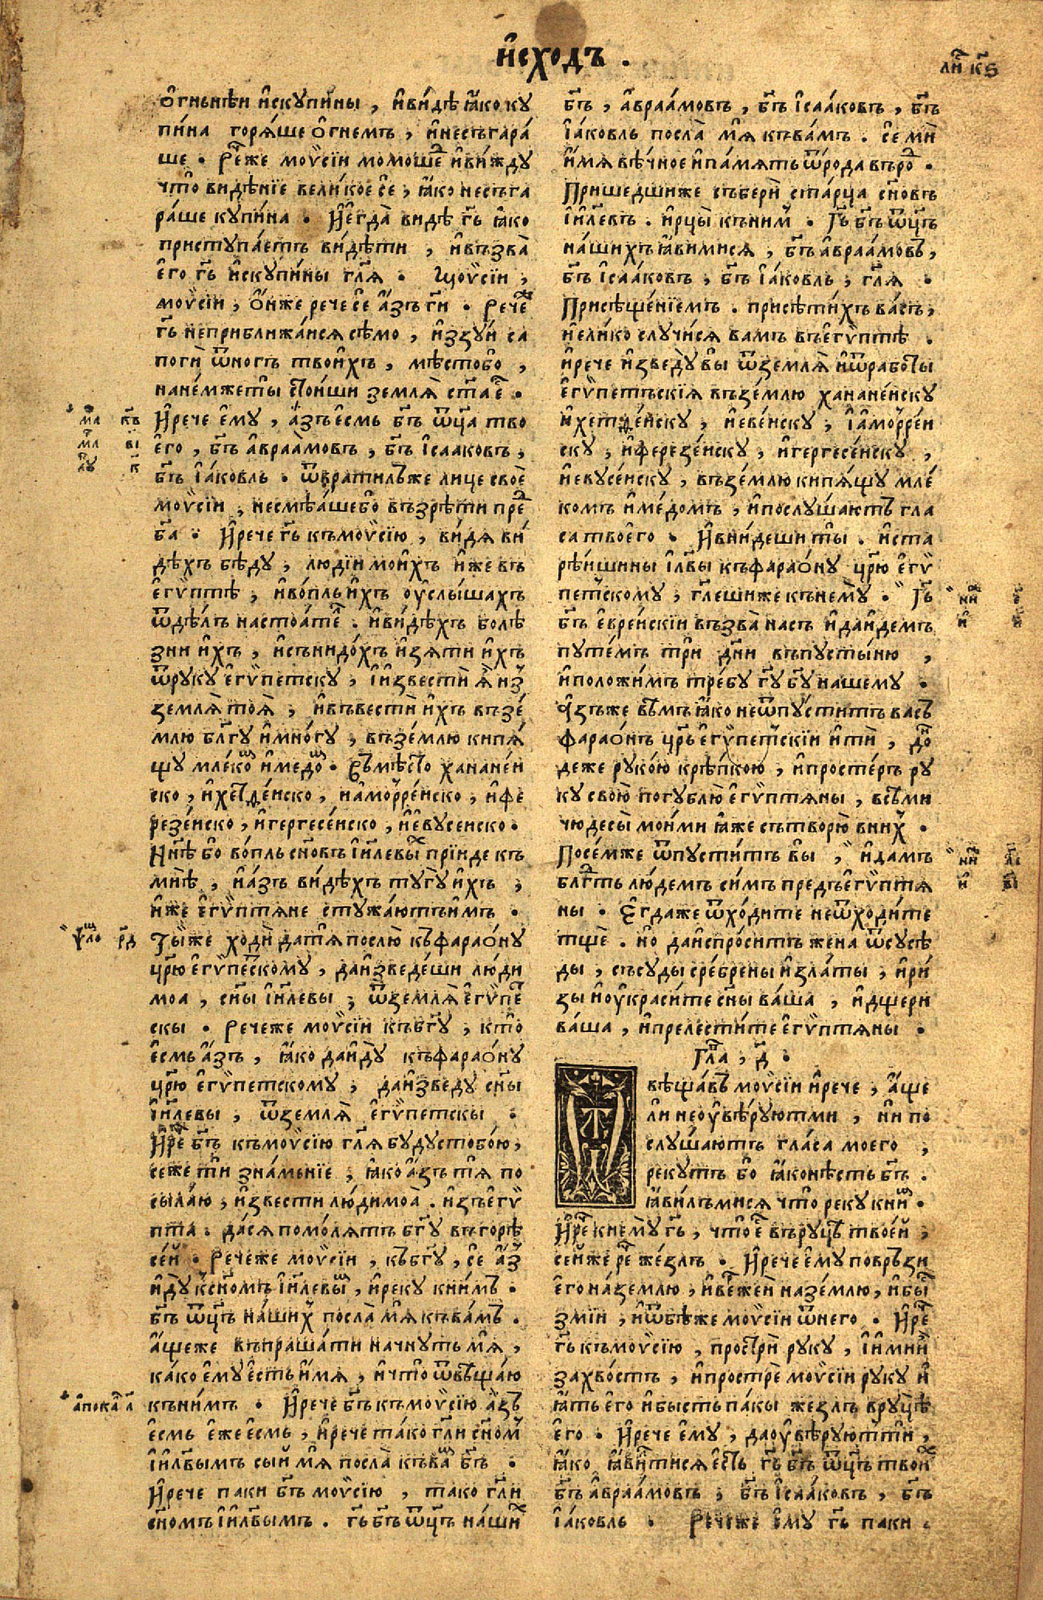 и҆схо́дъ .
ли́ст къ ѕ҃
ѻ҆́гньнѣи и҆скупины̀ , и҆ви́дѣ ꙗ҆́ко ку
пи́на горѧ́ше ѻ҆гне́мъ , и҆несъгара́
ше . Рече́же мѡѷсі́и мимоше́д и҆ви́жду
что̀ видѣ́нїе вели́кое сѐ , ꙗ҆́ко несъга
ра́ше купина̀ . И҆є҆гда̀ ви́дѣ гь҃ ꙗ҆́ко
приступа́етъ ви́дѣти , и҆възва̀
є҆го̀ гь҃ и҆скупины̀ гл҃ѧ . Мѡѷсі́и ,
мѡѷсі́и , ѻ҆́нже рече се а҆́зъ гн҃и . Рече́же
гь҃ неприближа́исѧ сѣ́мо , и҆ззу́и са
погѝ ѿно́гъ твои́хъ , мѣ́стобо ,
нане́мжеты̀ стои́ши землѧ̀ ст҃а є҆́ .
И҆рече є҆му̀ , а҆́зъ є҆́смь бг҃ъ ѿц҃а тво
є҆го̀ , бг҃ъ а҆враа́мовъ , бг҃ъ і҆саа́ковъ ,
бг҃ъ і҆а́ковль . ѿврати́лъже лице своѐ
мѡѷсі́и , несмѣ́ашебо възрѣ́ти пре́д
ба҃ . И҆рече гь҃ къмѡѷсі́ю , ви́дѧ ви́
дѣхъ бѣду̀ , люді́и мои́хъ и҆́же въ
є҆гѵ́птѣ , и҆во́пль и҆́хъ ѹ҆слы́шахъ
ѿдѣ́лъ наста́те́л . и҆ви́дѣхъ болѣ́
зни и҆́хъ , и҆сънидо́хъ и҆зѧ́ти и҆́хъ
ѿру́ку є҆гѵ́петску , и҆и҆звестѝ ѧ҆̀ и҆з
землѧ̀ тоѧ̀ , и҆въвестѝ и҆́хъ въз́е
млю бл҃гу и҆мно́гу , въземлю кипѧ́
щу млеко́м и҆медо́м . Въмѣсто ханане́и
ско , и҆хетфе́иско , и҆а҆морре́иско , и҆фе
резе́иско , и҆гергесе́иско , и҆є҆вусе́иско .
Нн҃ѣ бо во́пль сн҃овъ і҆и҃левы́х прїи́де къ
мнѣ̀ , и҆а҆́зъ ви́дѣхъ тугу̀ и҆́хъ ,
и҆́же є҆гѵ́птѧне стужа́ютъ и҆́мъ .
Ты́же ходѝ датѧ̀ послю̀ къфарао́ну
цр҃ю є҆гѵ́петскому , даи҆зведе́ши лю́ди
моа , сн҃ы і҆и҃левы , ѿземлѧ̀ є҆гѵ́пет
скы . Рече́же мѡѷсі́и къбг҃у , кто̀
є҆́смь а҆́зъ , ꙗ҆́ко даи҆ду̀ къфарао́ну
цр҃ю є҆гѵ́петскому , даи҆зведу̀ сн҃ы
і҆и҃левы , ѿземлѧ̀ є҆гѵ́петскы .
И҆рече бг҃ъ къмѡѷсі́ю гл҃ѧ бу́дустобо́ю ,
се́же тѝ зна́менїе , ꙗ҆́ко а҆́зъ тѧ̀ по
сыла́ю , и҆звестѝ лю́димоа̀ . и҆зъє҆гѵ́
пта . да́сѧпомо́лѧтъ бг҃у въго́рѣ
се́й . Рече́же мѡѷсі́и , къбг҃у , се а҆з
и҆ду̀ ксн҃омъ і҆и҃левы́м , и҆реку̀ кни́мъ .
бг҃ъ ѿц҃ъ на́ших посла̀ мѧ̀ къва́мъ .
а҆́щеже въпраша́ти начну́тъ мѧ̀ ,
ка́ко є҆му̀ е҆́сть и҆́мѧ , и҆что̀ ѿвѣща́ю
къни́мъ . И҆рече бг҃ъ къмѡѷсі́ю а҆́зъ
є҆смь е҆́же є҆́смь , и҆рече та́ко гл҃и сн҃омъ
і҆и҃лвымъ сы́й мѧ̀ посла̀ къва́м бг҃ъ .
И҆рече паки бг҃ъ мѡѷсі́ю , та́ко гл҃и
сн҃омъ і҆и҃лвымъ . гь҃ бг҃ъ ѿц҃ъ на́ших
бг҃ъ , а҆враа́мовъ , бг҃ъ і҆саа́ковъ , бг҃ъ
і҆а́ковль посла̀ мѧ̀ къва́мъ . се мѝ
и҆́мѧ вѣ́чное и҆па́мѧть ѿро́да въро́д .
Прише́дшиже съберѝ ста́рца сн҃овъ
і҆и҃левъ . и҆рцы̀ къни́м . Гь҃ бг҃ъ ѿц҃ъ
на́шихъ ꙗ҆ви́мисѧ , бг҃ъ а҆враа́мовъ ,
бг҃ъ і҆саа́ковъ , бг҃ъ і҆а́ковль , гл҃ѧ .
Присѣще́нїемъ . присѣти́хъ ва́съ ,
и҆ели́ко случи́сѧ ва́мъ въє҆гѵ́птѣ .
и҆рече и҆зведу̀ вы ѿземлѧ̀ и҆ѿрабо́ты
є҆гѵ́петъскїѧ въземлю ханане́иску
и҆хетфе́иску , и҆еве́иску , и҆а҆морре́и
ску , и҆ферезе́иску , и҆гергесе́иску ,
и҆евусе́иску , въземлю кипѧ́щу мле́
комъ и҆ме́домъ , и҆послу́шаютъ гла
са твоего̀ . И҆вни́деши ты̀ . и҆ста
рѣ́ишины і҆и҃лвы къфарао́ну цр҃ю є҆гѵ́
петскому , гл҃ешиже кънему̀ . Гь҃
бг҃ъ є҆вре́искїи възва̀ на́съ и҆даи҆́демъ
путе́мъ трѝ дн҃и въпусты́ню ,
и҆положи́мъ тре́бу гу҃ бг҃у на́шему .
А҆́зъже вѣ́мъ ꙗ҆́ко неѿпу́ститъ ва́съ
фарао́нъ цр҃ь є҆гѵ́петскїи и҆тѝ , до́н
деже руко́ю крѣ́пкою , и҆просте́ръ ру
ку свою̀ погублю̀ є҆гѵ́птѧны , всѣ́ми
чюдесы̀ мои́ми ꙗ҆́же сътворю̀ вни́х .
Посе́мже ѿпу́ститъ вы , и҆да́мъ
блг҃ть лю́демъ си́мъ предъє҆гѵ́птѧ
ны . Є҆гда́же ѿхо́дите неѿходи́те
тщѐ . но даи҆спро́ситъ жена̀ ѿсусѣ́
ды , съсу́ды сре́брены и҆зла́ты , и҆ри́
зы и҆ѹ҆кра́сите сн҃ы ва́ша , и҆дще́ри
ва́ша , и҆прелести́те є҆гѵ́птѧны .
Гла҃ , д҃ .
Ѿвѣща́въ мѡѷсі́и и҆рече , а҆́ще
ли неѹ҆вѣ́руютми , ни по
слу́шаютъ гла́са моего̀ ,
реку́тъ бо ꙗ҆́конѣ́сть бг҃ъ .
ꙗ҆ви́лъмисѧ что̀ реку̀ кни́м .
И҆рече кнему̀ гь҃ , что̀ е҆́ въруцѣ̀ твое́й ,
се́йже рече же́злъ . И҆рече є҆му̀ пове́рзи
є҆го̀ на́землю , и҆ве́рже́и на́землю , и҆бы́
змі́и , и҆ѿбѣ́же мѡѷсі́и ѿнего̀ . И҆рече
гь҃ къмѡѷсі́ю , прострѝ ру́ку , и҆и҆мѝ
захво́стъ , и҆прострѐ мѡѷсі́и ру́ку и҆
ꙗ҆́тъ є҆го̀ и҆бы́сть па́кы же́злъ вруцѣ̀
є҆го̀ . И҆рече є҆му̀ , даѹ҆вѣ́руютъти ,
ꙗ҆́ко ꙗ҆ви́тисѧ е҆́сть гь҃ бг҃ъ ѿц҃ъ твои́х
бг҃ъ а҆враа́мовъ , бг҃ъ і҆саа́ковъ , бг҃ъ
і҆а́ковль . Рече́же є҆му̀ гь҃ паки .